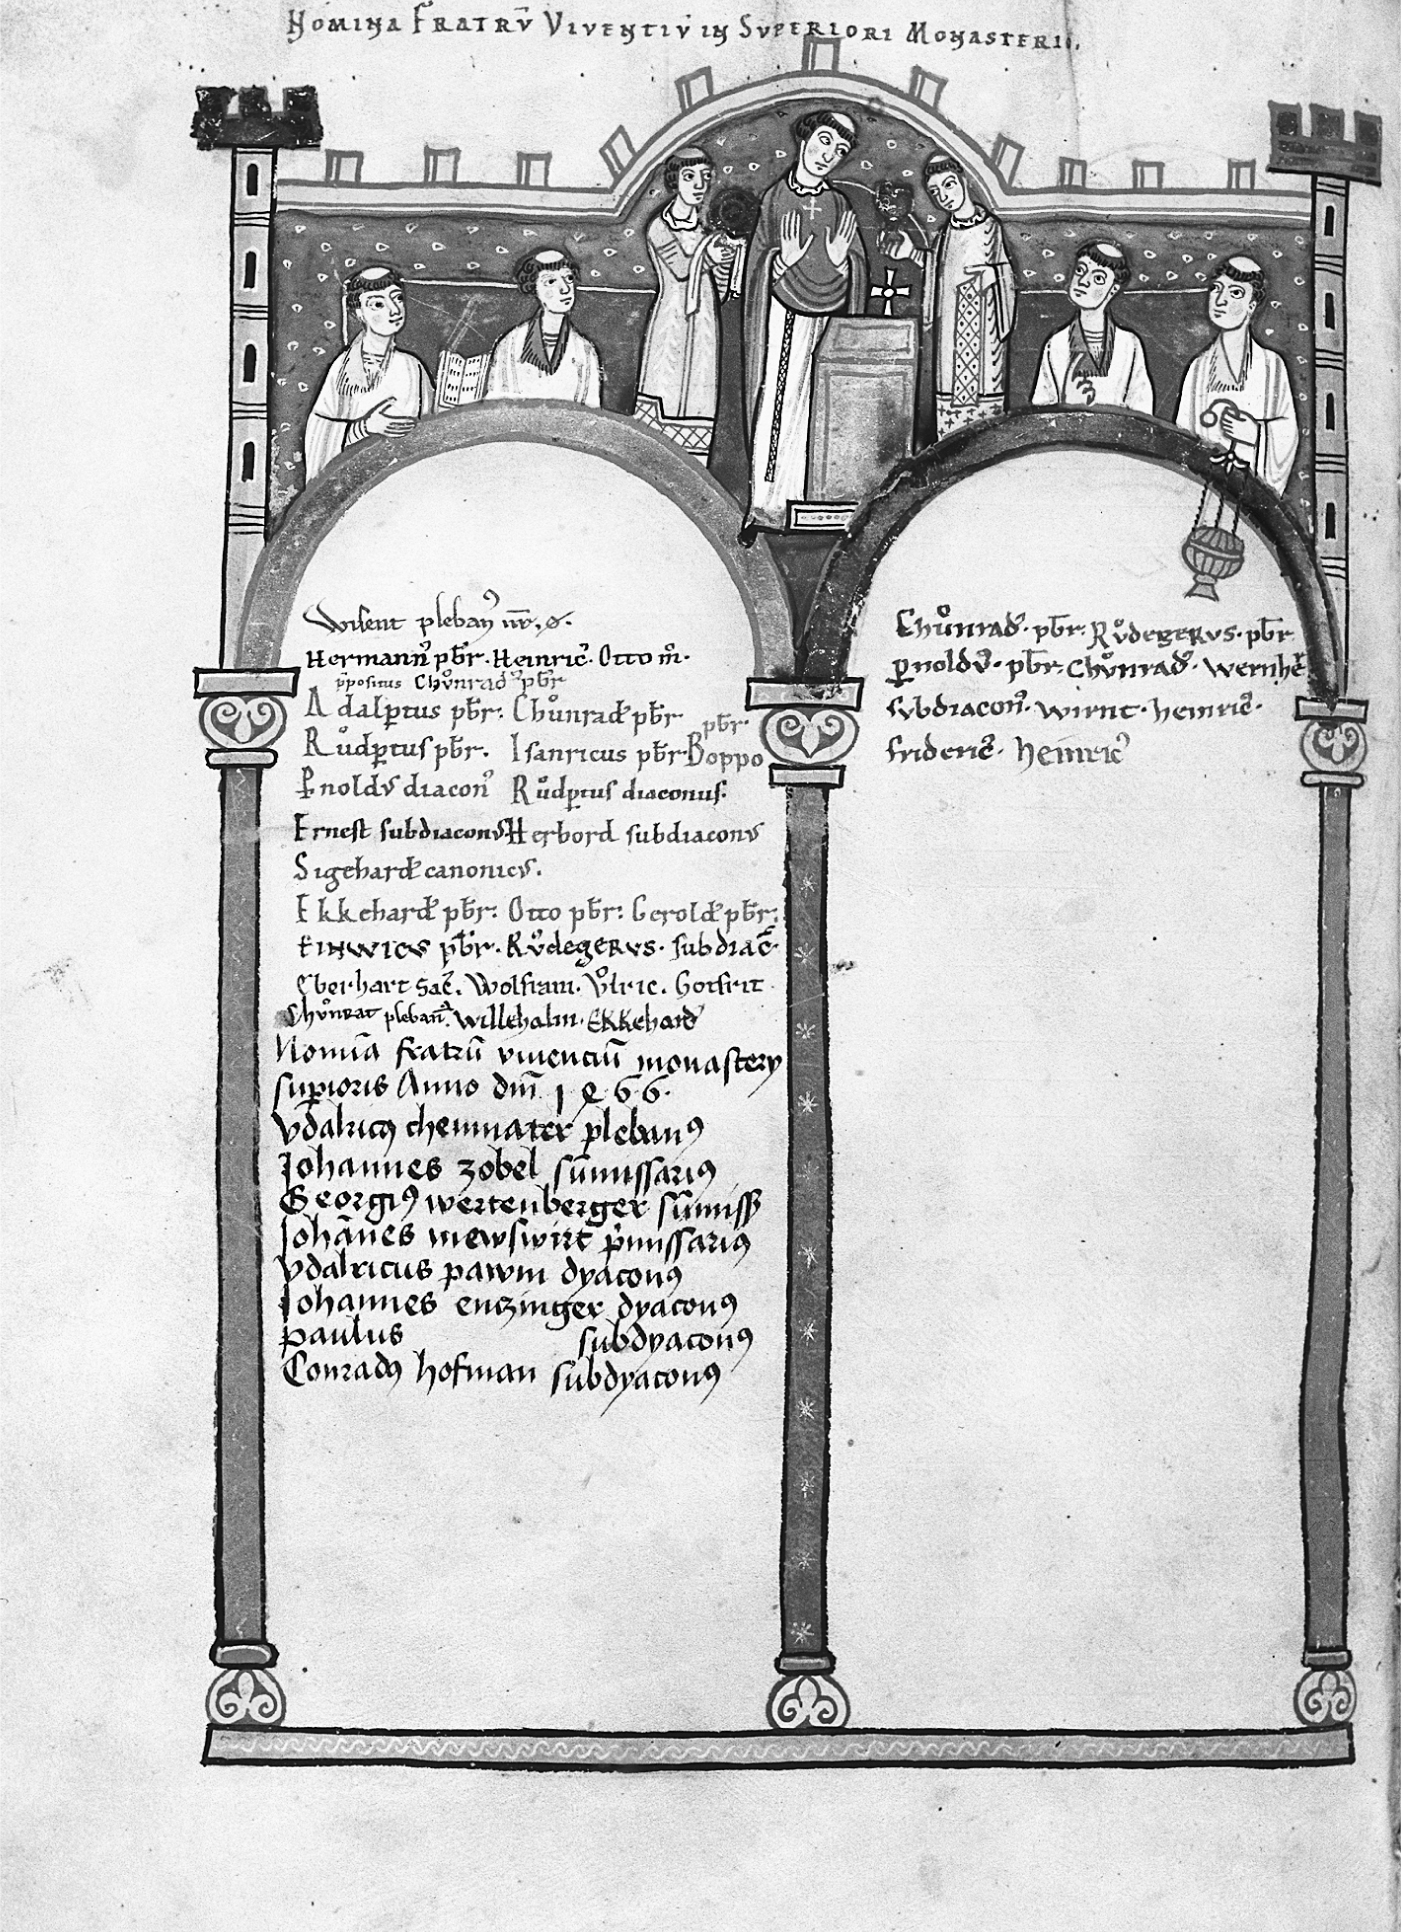 NOMINA FRATRŪ VIVENTIŪ IN SVPERIORI MONASTERIO.
Wisent plebanꝰ
Hermannꝰ pb̄r. Heinricꝰ. Otto m̄.
p̄positus Chůnradꝰ pb̄r
Adalꝑtus pb̄r: Chůnradꝰ pb̄r pb̄r.
Růdꝑtus pb̄r. Isanricus pb̄r. Boppo
Ꝑnoldus diaconꝰ Růdꝑtus diaconus.
Ernest subdiaconus. Herbord subdiaconus
Sigehardꝰ canonicus.
Ekkehardꝰ pb̄r: Otto pb̄r: Geroldꝰ pb̄r:
EINWICVS pb̄r. RůdegERVS. subdiac̄.
Eberhart Sac̄. Wolfram. Vͦlric. Gotfrit.
Chůnrat plebanꝰ. Willehalm. Ekkehardꝰ
Nomīa fratrū viuenciū monastery
suꝑioris Anno dm̄ 1466.
Vdalricꝰ chemnater plebanꝰ
Johannes zobel sūmissariꝰ
Georgiꝰ wertenberger sūmiss
Johānes newswirt p̄missariꝰ
Vdalricus pawm dyaconꝰ
Johannes enczinger dyaconꝰ
paulus subdyaconꝰ
Conradꝰ hofman subdyaconꝰ
Chůnradꝰ. pb̄r. RůdegeRVS. pb̄r.
ꝑnoldꝰ. pb̄r. Chůnradꝰ. Wernheꝰ
subdiaconꝰ. wirnt. heinricꝰ.
fridericꝰ. heinricꝰ